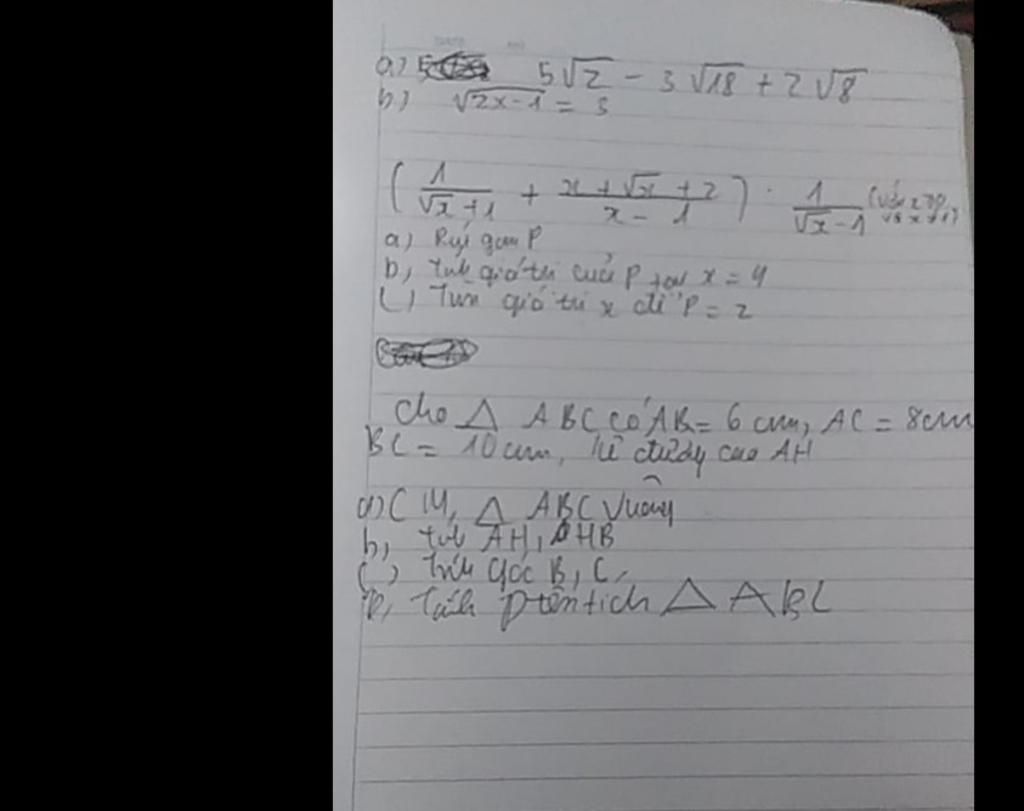 a) 5√2 - 3√18 + 2√8
b) √2x-1 = 3
( 1/(√x+1) + (x+√x+2)/(x-1) ) · 1/(√x-1) (với x
a) Rút gọn P
b, Tính giá trị của P tại x = 4
c) Tìm giá trị x để P = 2
cho Δ ABC có AB = 6 cm, AC = 8cm
BC = 10 cm, kẻ đường cao AH
a) CM, Δ ABC vuông
b, tính AH, HB
c) tính góc B, C,
D, Tính diện tích Δ ABC